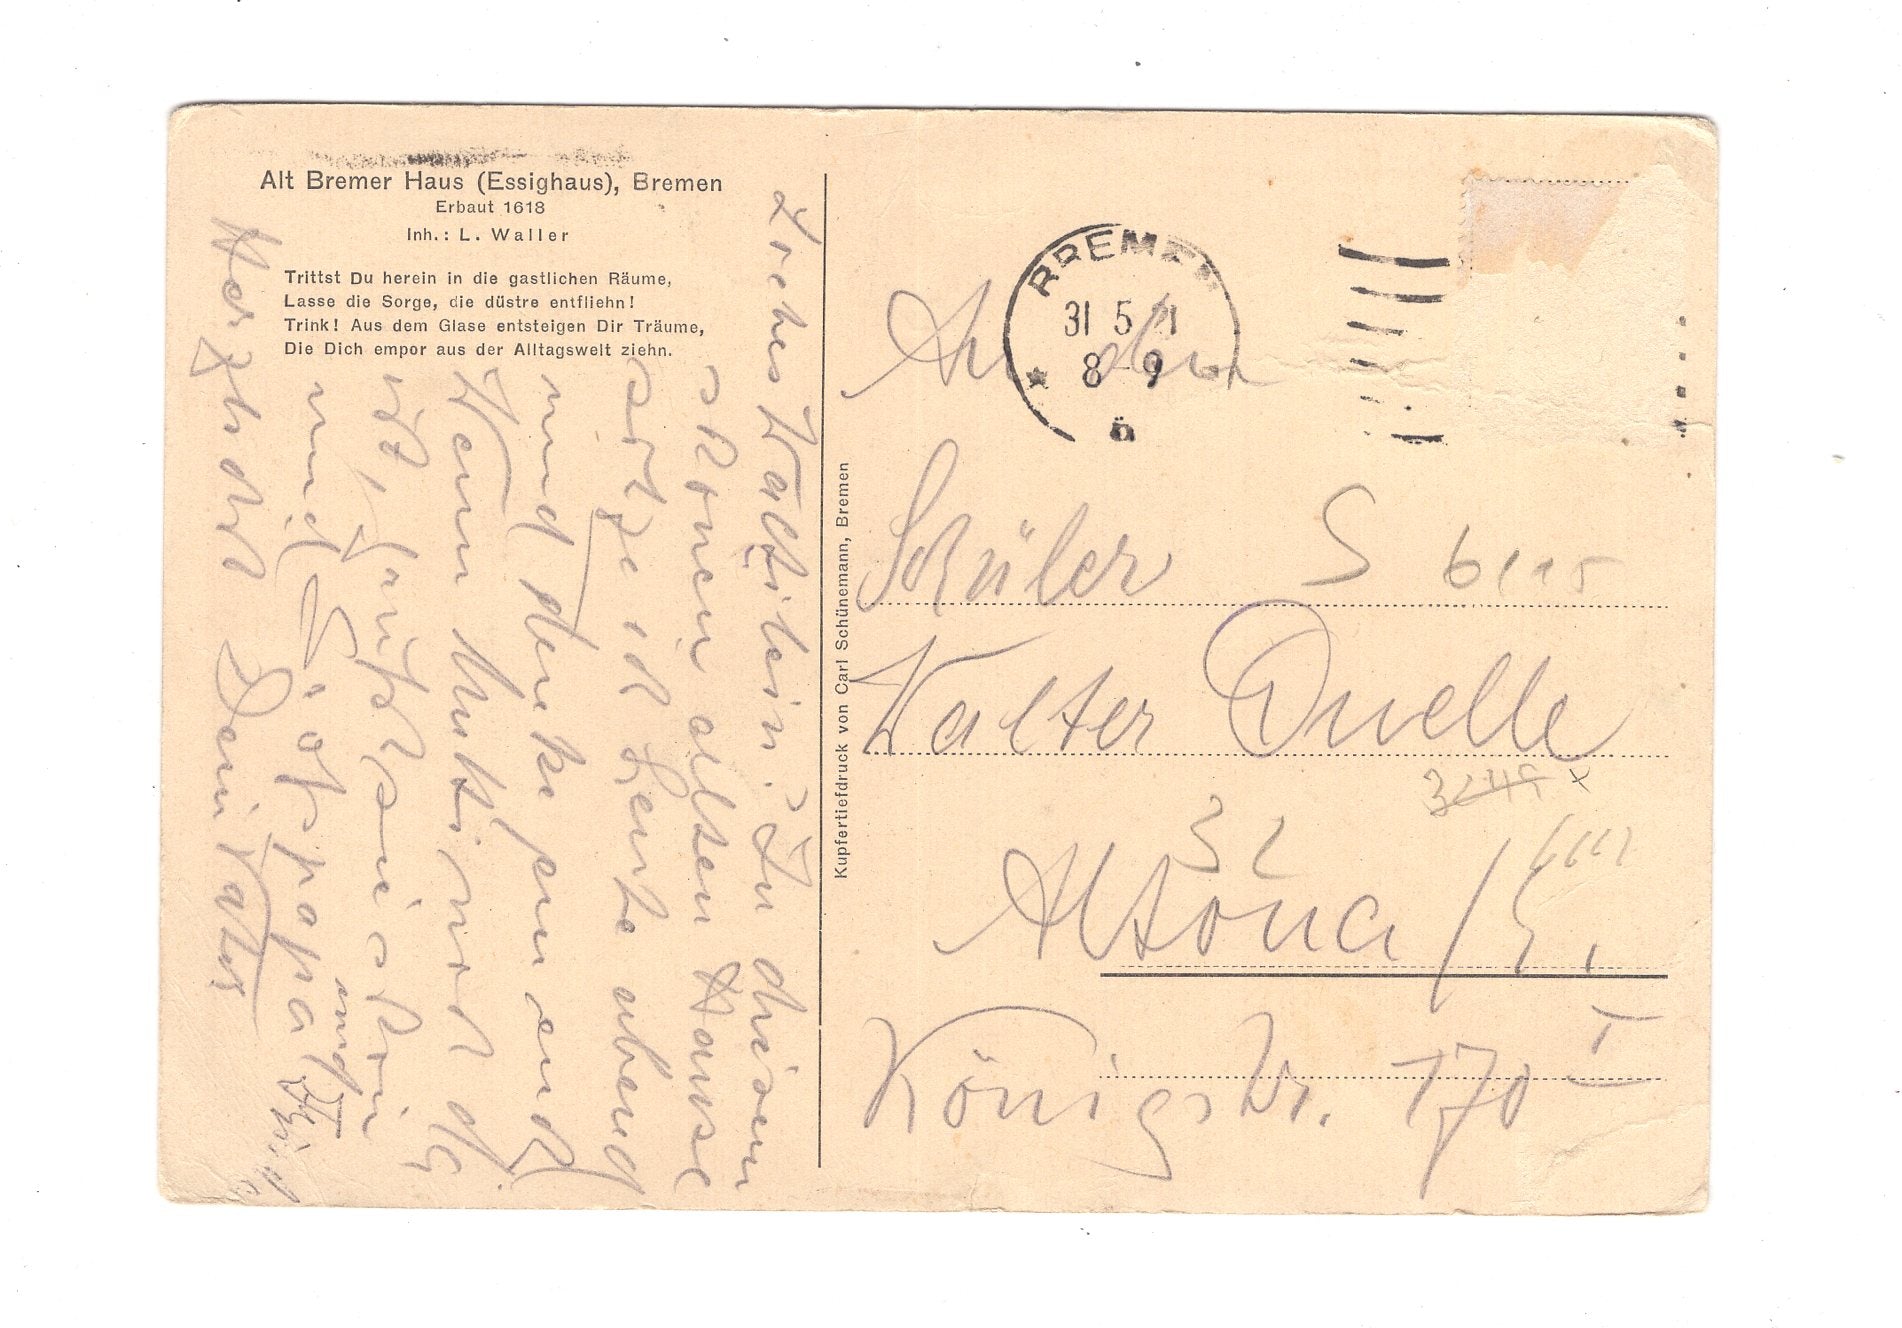 Alt Bremer Haus (Essighaus), Bremen
Erbaut 1618
Inh.: L. Waller
Trittst Du herein in die gastlichen Räume,
Lasse die Sorge, die düstre entfliehn!
Trink! Aus dem Glase entsteigen Dir Träume,
Die Dich empor aus der Alltagswelt ziehn.
Liebes Walterlein! In diesem
schönen alten Hause
sitze ich heute abend
und denke an euch
Wenn Mutti noch da
ist, grüß sie schön
und Großpapa und Frida
Herzlichst Dein Vater
Kupfertiefdruck von Carl Schünemann, Bremen
BREMEN
31 5
8-9
An den
Schüler
S 6115
Walter Quelle
32
Altona / E.
Königstr. 170 I